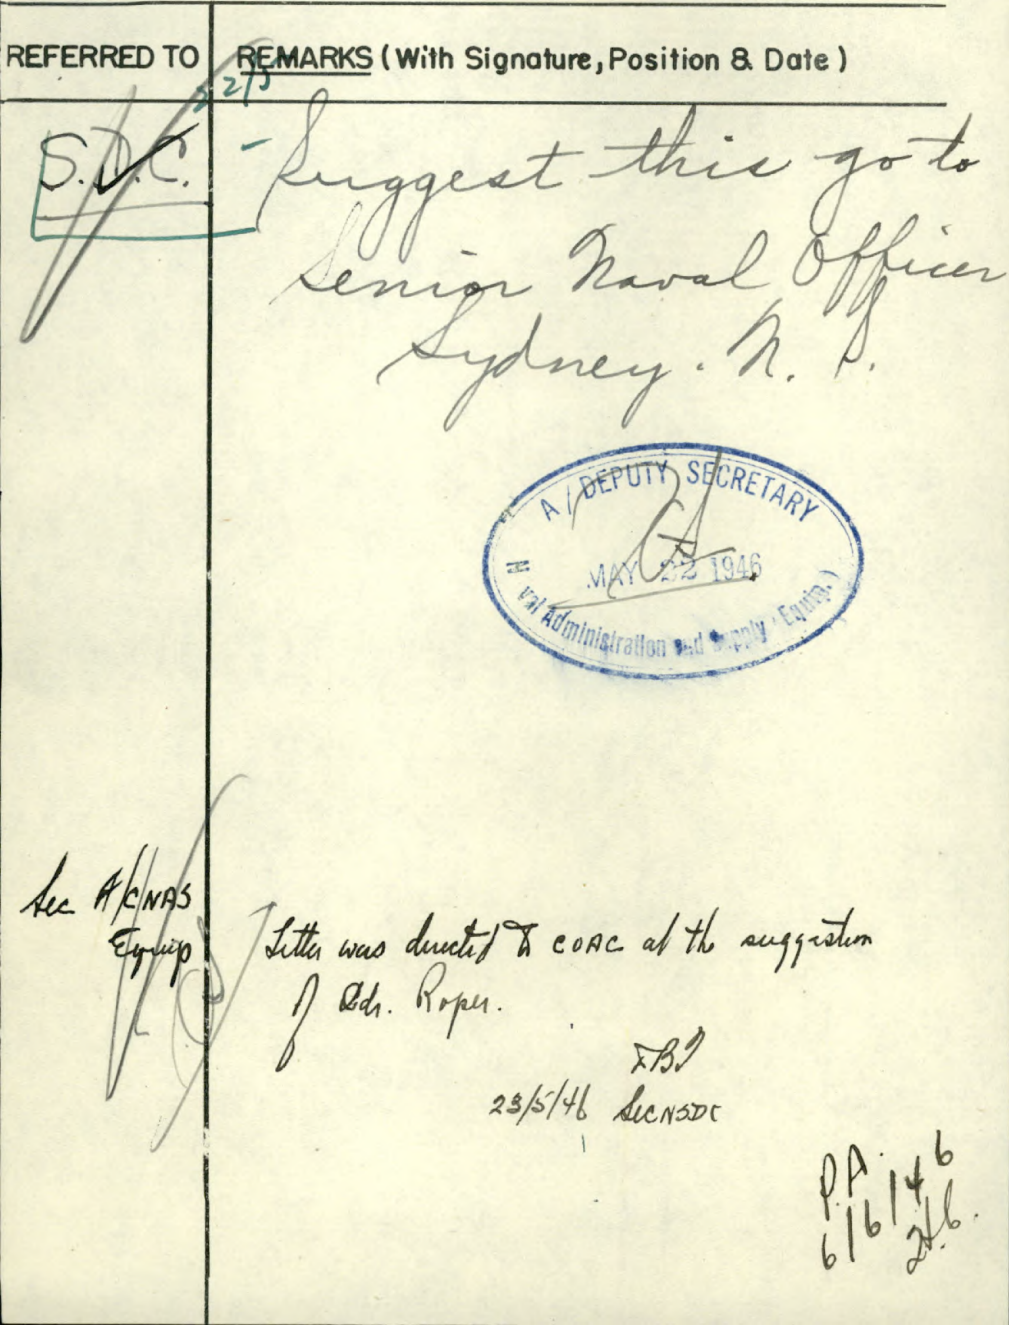 REFERRED TO
REMARKS (With Signature, Position & Date)
22/5
S.D.C. - Suggest this go to
Senior Naval Officer
Sydney. N. S.
A / DEPUTY SECRETARY
MAY 22 1946
val Administration and Supply Equip.)
Sec A/CNAS
Equip
Letter was directed to COAC at the suggestion
of Cdr. Roper.
23/5/46 Sec NSDC
P.A.
6/6/46